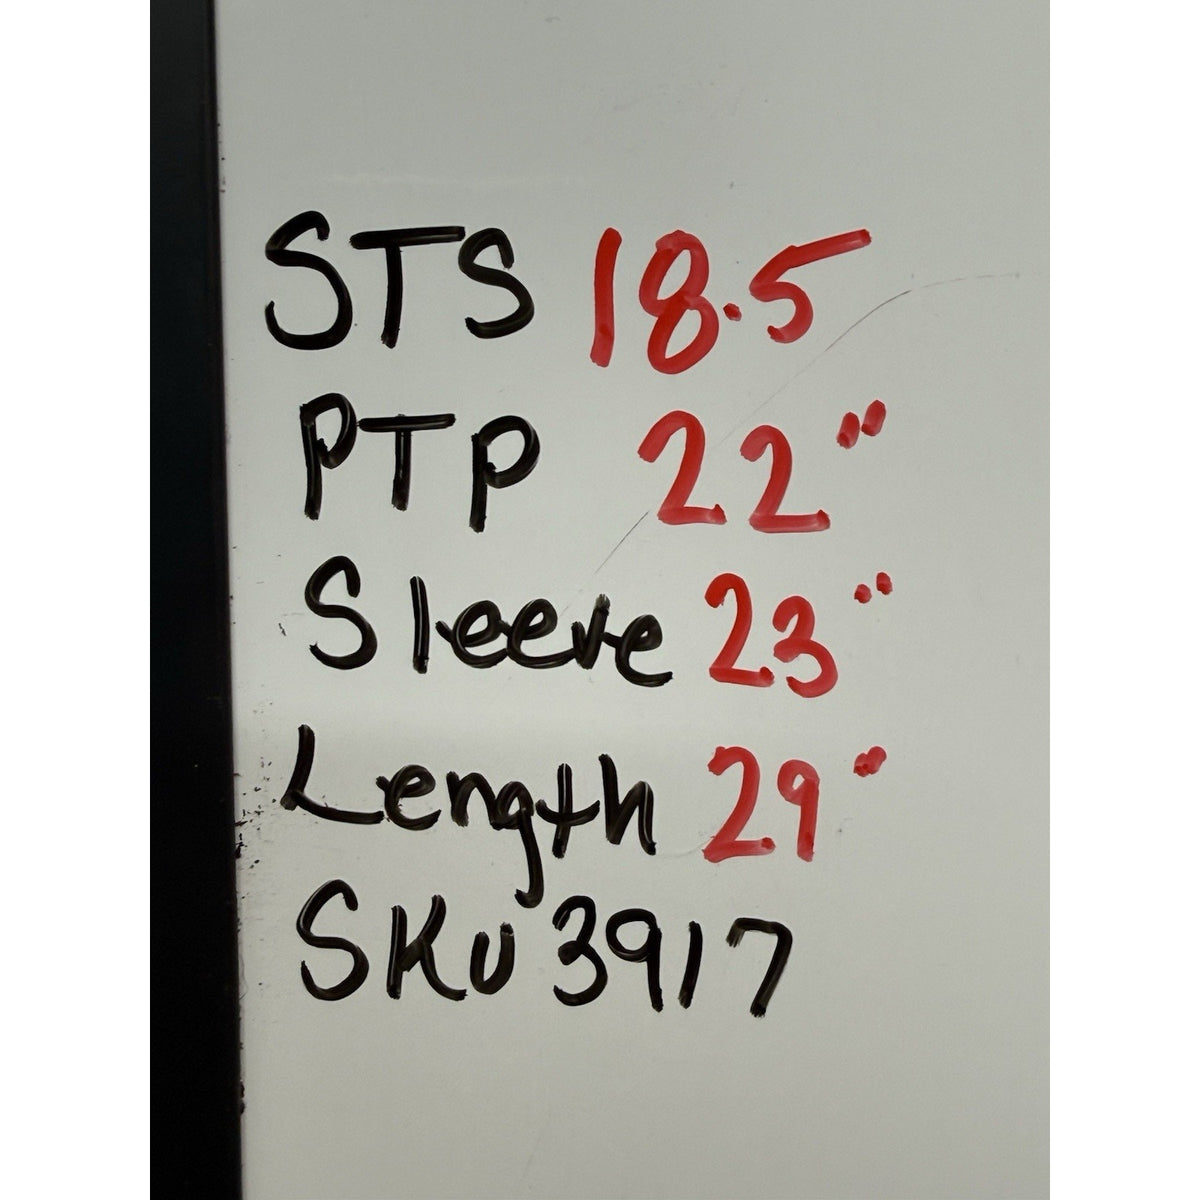 STS 18.5
PTP 22"
Sleeve 23"
Length 29"
SKU 3917